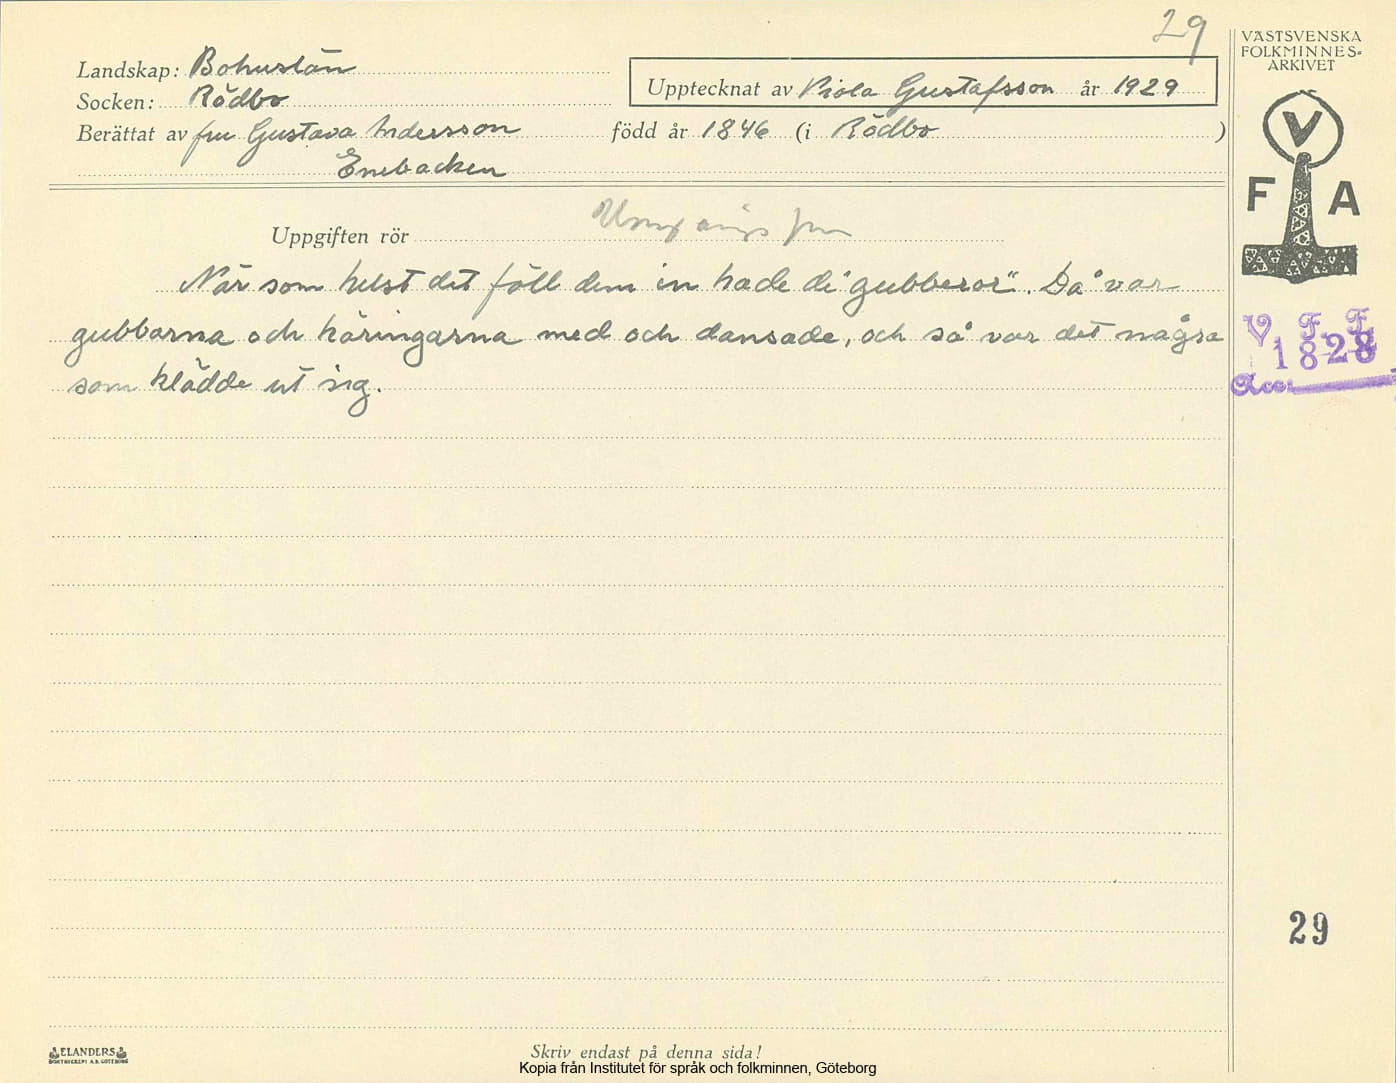 29
VÄSTSVENSKA
FOLKMINNES-
ARKIVET
Landskap: Bohuslän
Socken: Rödbo
Upptecknat av Viola Gustafsson år 1929
Berättat av fru Gustava Andersson född år 1846 (i Rödbo )
Enebacken
V
F A
Uppgiften rör
När som helst det föll dem in hade di "gubberör". Då var
gubbarna och käringarna med och dansade, och så var det några
som klädde ut sig.
V. F. F.
1828
Acc:
29
ELANDERS
BOKTRYCKERI A.B. GÖTEBORG
Skriv endast på denna sida!
Kopia från Institutet för språk och folkminnen, Göteborg